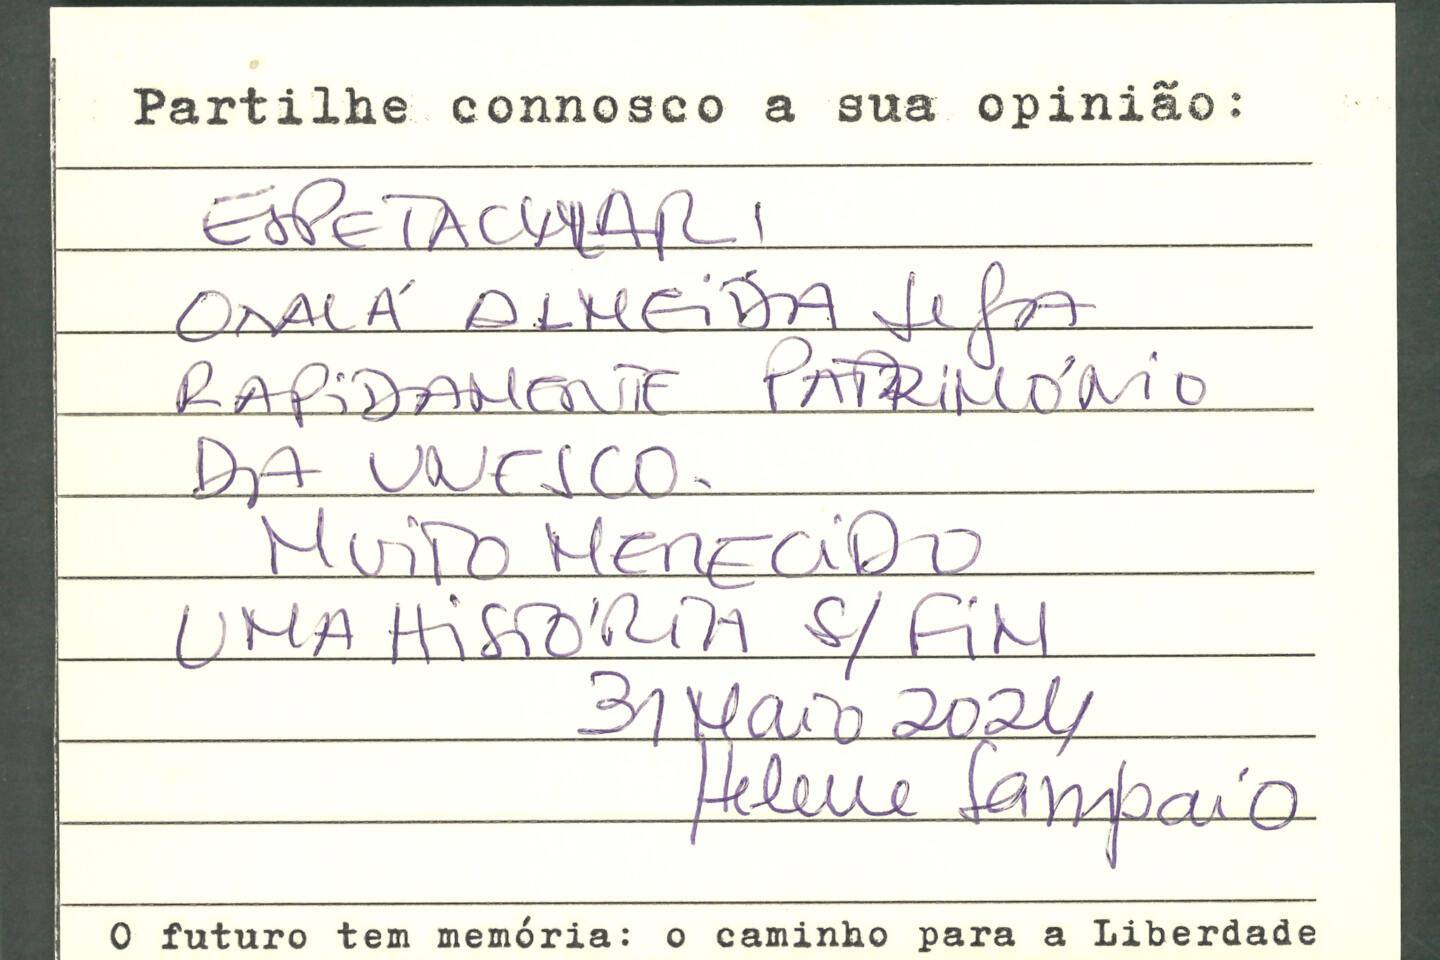 Partilhe connosco a sua opinião:
ESPETACULAR!
OXALÁ ALMEIDA SEJA
RAPIDAMENTE PATRIMÓNIO
DA UNESCO.
MUITO MERECIDO
UMA HISTÓRIA S/ FIM
31 Maio 2024
Helene Sampaio
O futuro tem memória: o caminho para a Liberdade